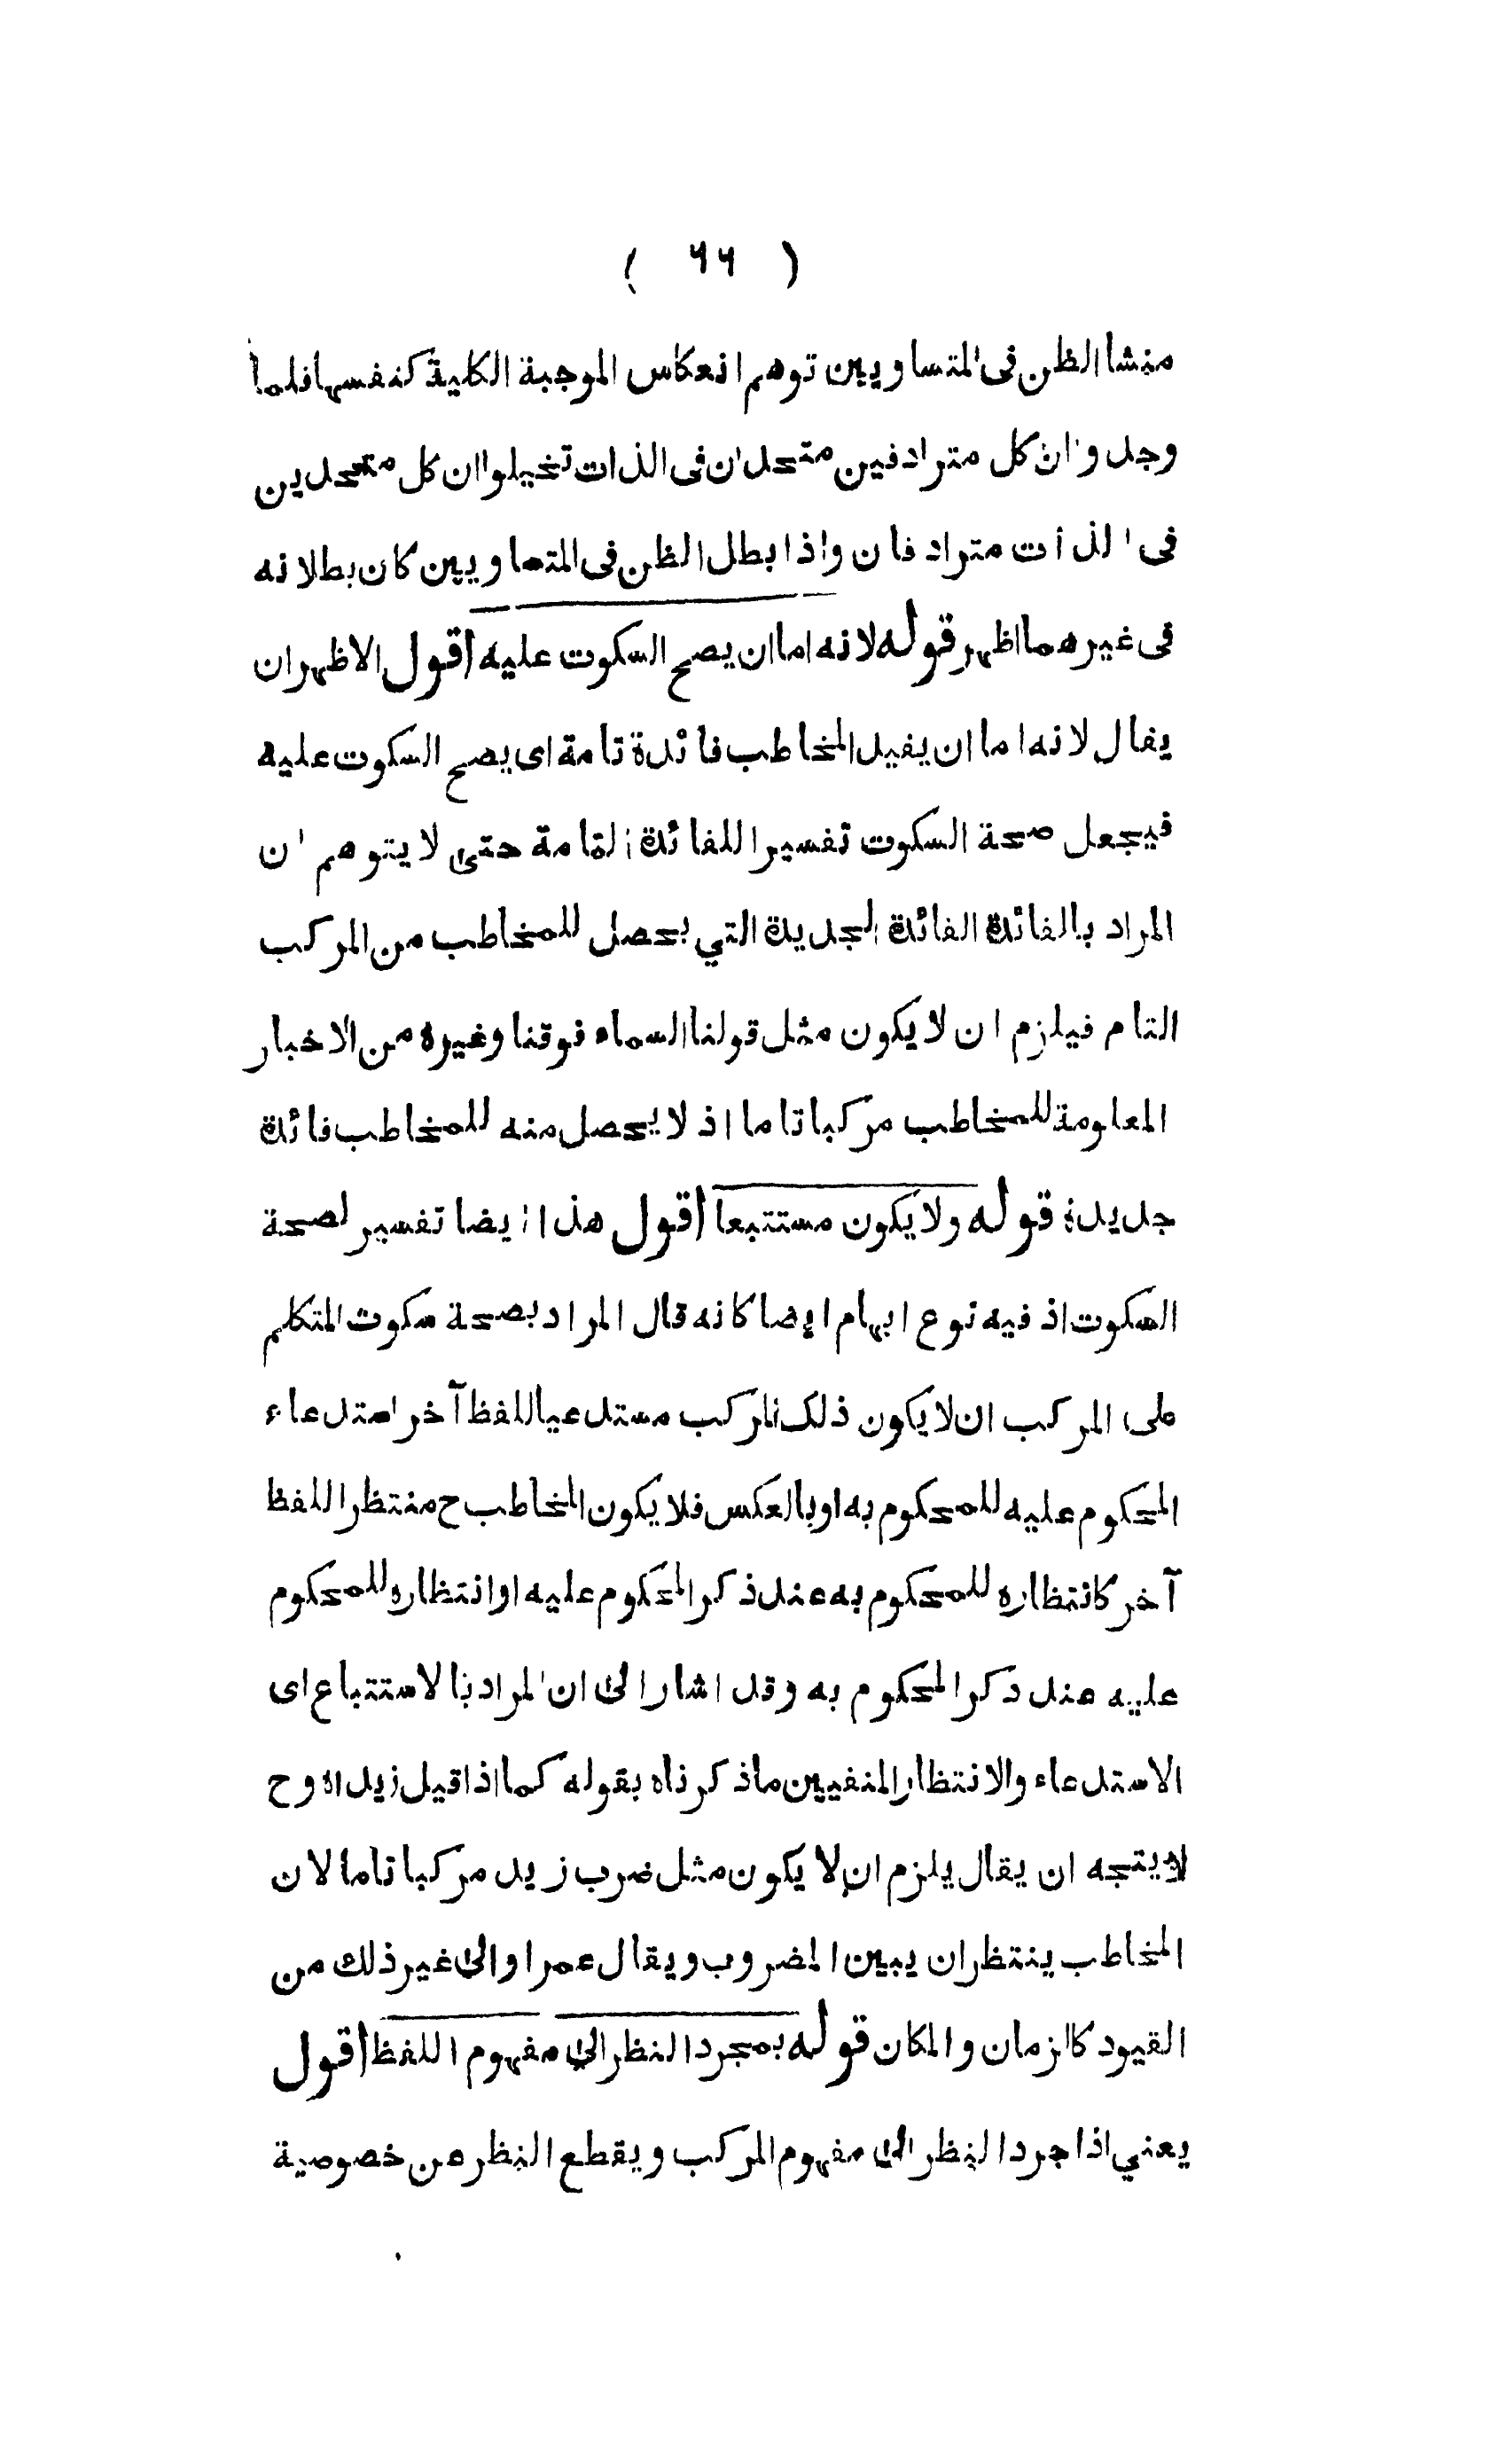 ( ٦٦ )
منشا الظن فى المتساويين توهم انعكاس الموجبة الكلية كنفسها فلما
وجدوا ان كل مترادفين متحدان فى الذات تخيلوا ان كل متحدين
فى الذات مترادفان واذا بطل الظن فى المتساويين كان بطلانه
فى غيرهما اظهر قوله لانه اما ان يصح السكوت عليه اقول الاظهر ان
يقال لانه اما ان يفيد المخاطب فائدة تامة اى يصح السكوت عليه
فيجعل صحة السكوت تفسيرا للفائدة التامة حتى لا يتوهم ان
المراد بالفائدة الفائدة الجديدة التي يحصل للمخاطب من المركب
التام فيلزم ان لا يكون مثل قولنا السماء فوقنا وغيره من الاخبار
المعلومة للمخاطب مركبا تاما اذ لا يحصل منه للمخاطب فائدة
جديدة قوله ولا يكون مستتبعا اقول هذا ايضا تفسير لصحة
السكوت اذ فيه نوع ابهام ايضا كانه قال المراد بصحة سكوت المتكلم
على المركب ان لا يكون ذلك المركب مستدعيا للفظ آخر استدعاء
المحكوم عليه للمحكوم به او بالعكس فلا يكون المخاطب ح منتظرا للفظ
آخر كانتظاره للمحكوم به عند ذكر المحكوم عليه او انتظاره للمحكوم
عليه عند ذكر المحكوم به وقد اشار الى ان المراد بالاستتباع اى
الاستدعاء والانتظار المنفيين ما ذكرناه بقوله كما اذا قيل زيد اه وح
لا يتجه ان يقال يلزم ان لا يكون مثل ضرب زيد مركبا تاما لان
المخاطب ينتظر ان يبين المضروب ويقال عمرا والى غير ذلك من
القيود كالزمان والمكان قوله بمجرد النظر الى مفهوم اللفظ اقول
يعني اذا جرد النظر الى مفهوم المركب ويقطع النظر عن خصوصية